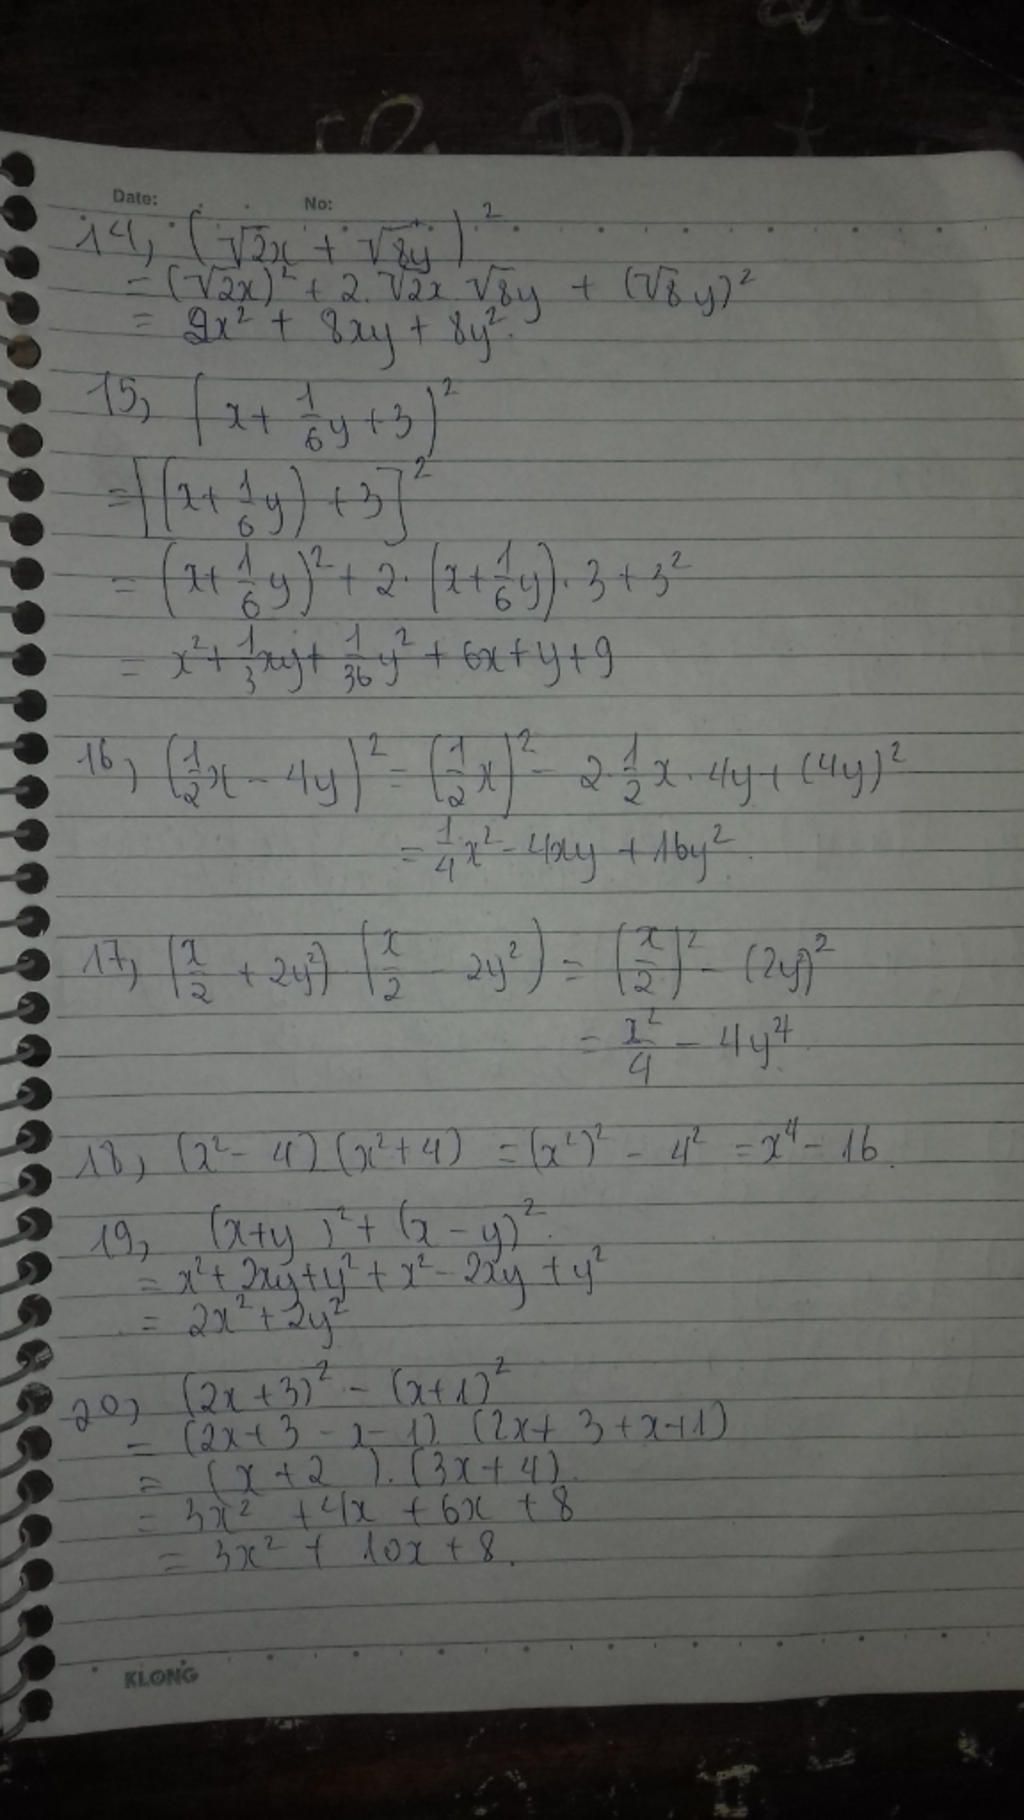 Date: No:
14, (√2x + √8y)²
= (√2x)² + 2.√2x.√8y + (√8y)²
= 2x² + 8xy + 8y².
15, (x + 1/6y + 3)²
= [(x + 1/6y) + 3]²
= (x + 1/6y)² + 2.(x + 1/6y).3 + 3²
= x² + 1/3xy + 1/36y² + 6x + y + 9
16, (1/2x - 4y)² = (1/2x)² - 2.1/2x.4y + (4y)²
= 1/4x² - 4xy + 16y².
17, (x/2 + 2y²) (x/2 - 2y²) = (x/2)² - (2y²)²
= x²/4 - 4y⁴.
18, (x² - 4) (x² + 4) = (x²)² - 4² = x⁴ - 16.
19, (x+y)² + (x - y)².
= x² + 2xy + y² + x² - 2xy + y²
= 2x² + 2y²
20, (2x + 3)² - (x + 1)²
= (2x + 3 - x - 1).(2x + 3 + x + 1)
= (x + 2).(3x + 4).
= 3x² + 4x + 6x + 8
= 3x² + 10x + 8.
KLONG